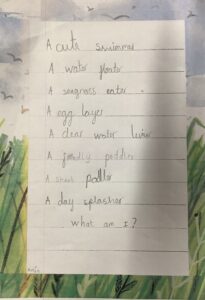 A cute swimmer
A water floater
A seagrass eater
A egg layer
A clear water liver
A friendly peddler
A shell
A day splasher
what am I?